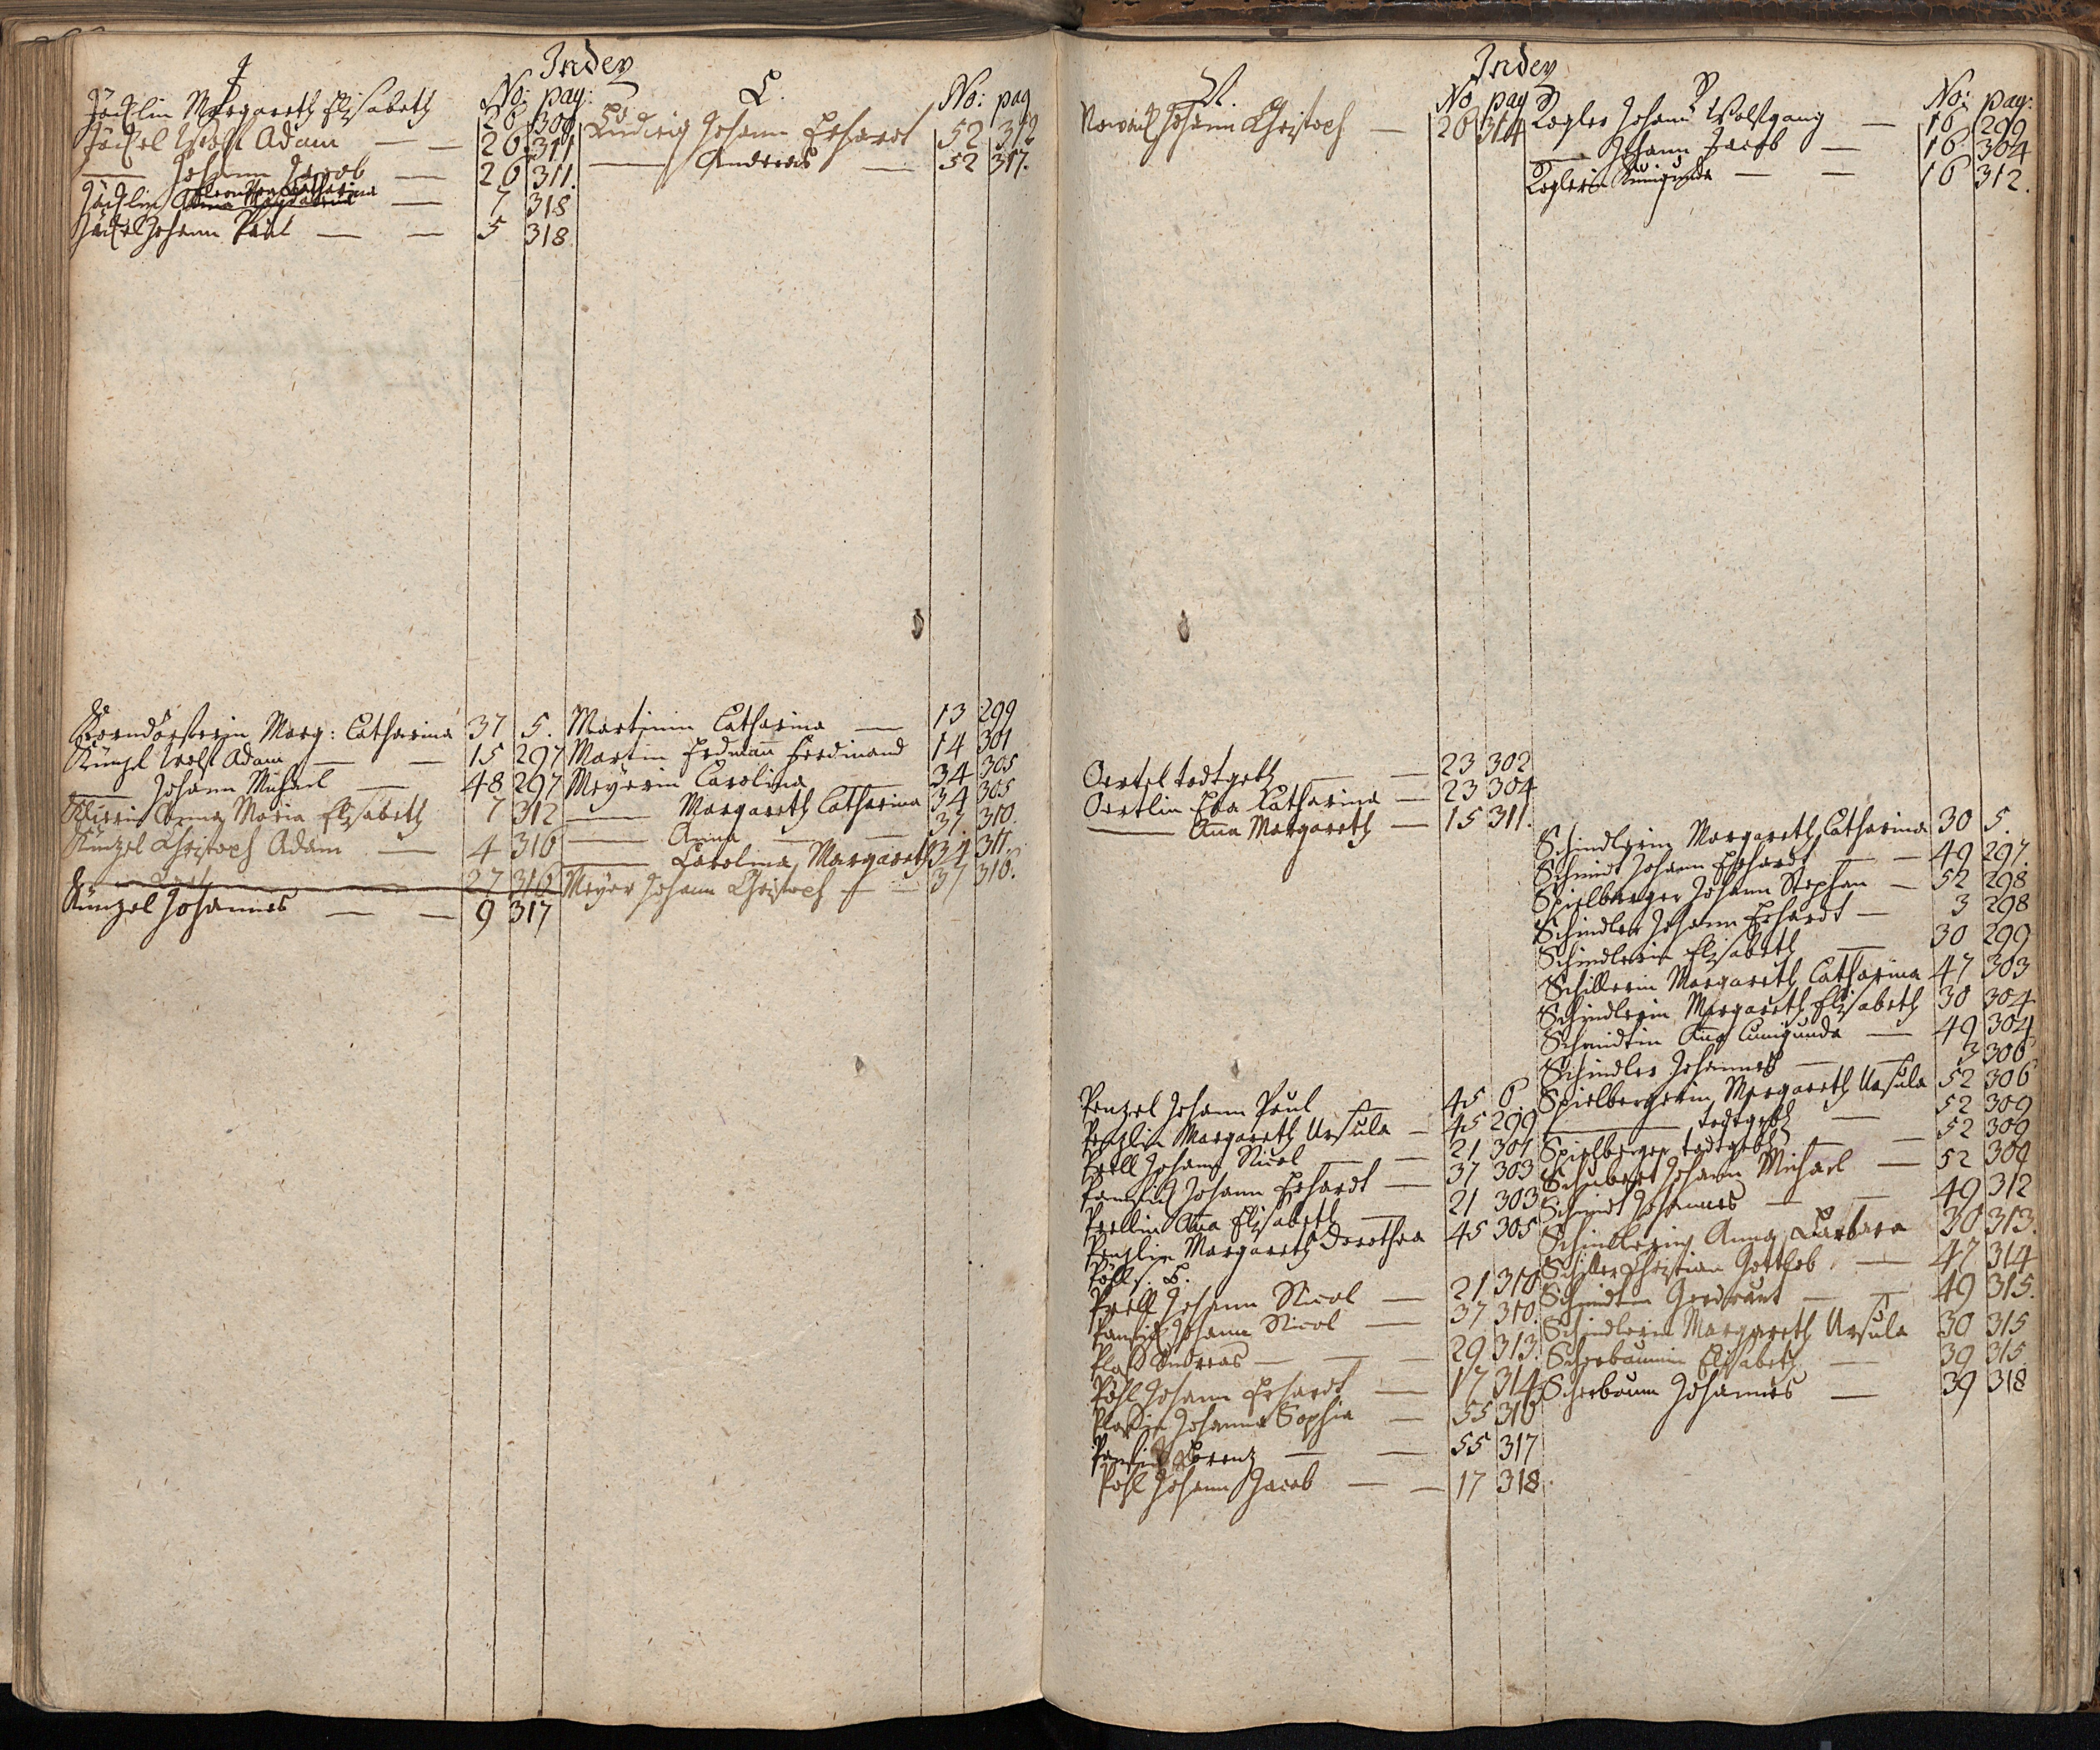 Index
J No: pag:
Jäcklin Margareth Elisabeth 26 309
Jäckel Wolf Adam — — 26 311
— Johann Jacob — 26 311.
Jäcklin Catharina — 7 318
Jäckel Johann Paul — — 5 318
Korndörferin Marg: Catharina 37 5.
Künzel Wolf Adam — — 15 297
— Johann Michael — 48 297
Anna Maria Elisabeth 7 312
Künzel Christoph Adam — 4 316
27 316
Künzel Johannes — — 9 317
L. No: pag
Ludwig Johann Erhardt 52 312
— Andreas — 52 317.
Martinin Catharina — 13 299
Martin Erdmann Ferdinand 14 301
Meyerin Carolina — 34 305
— Margareth Catharina 34 305
— Anna — — 37 310.
— Carolina Margareth 34 311.
Meyer Johann Christoph — — 37 316.
Index
N. No pag
Johann Christoph — 26 314
Oertel todtgeb — — 23 302
Oertlin Eva Catharina — 23 304
— Anna Margareth — 15 311.
Penzel Johann Paul — 45 6.
Penzlin Margareth Ursula — 45 299
Prell Johann Nicol — — 21 301
Johann Erhardt — 37 303
Prellin Anna Elisabeth — 21 303
Penzlin Margareth Dorothea 45 305
Pöhl s. B.
Prell Johann Nicol — 21 310
Johann Nicol — 37 310.
Plaß Andreas — — — 29 313.
Pöhl Johann Erhardt — 17 314
Johanna Sophia — 55 316
Lorenz — — 55 317
Pöhl Johann Jacob — — 17 318.
R No: pag:
Rogler Johann Wolfgang — 16 299
— Johann Jacob — 16 304
Roglerin Kunigunda — — 16 312.
Schindlerin Margareth Catharina 30 5.
Schmidt Johann Erhardt — — 49 297.
Spielberger Johann Stephan — 52 298
Schindler Johann Erhardt — 3 298
Schindlerin Elisabeth — 30 299
Schillerin Margareth Catharina 47 303
Schindlerin Margareth Elisabeth 30 304
Schmidtin Anna Cunigunda — 49 304
Schindler Johannes — — 3 306
Spielbergerin Margareth Ursula 52 306
— todtgeb — 52 309
Spielberger todtgeb — — 52 309
Schubert Johann Michael — 52 309
Schmidt Johannes — — 49 312
Schindlerin Anna Barbara 30 313.
Schiller Christian Gottlob — 47 314
Schmidtin Gerdraut — — 49 315.
Schindlerin Margareth Ursula 30 315
Scherbaumin Elisabeth — 39 315
Scherbaum Johannes — 39 318